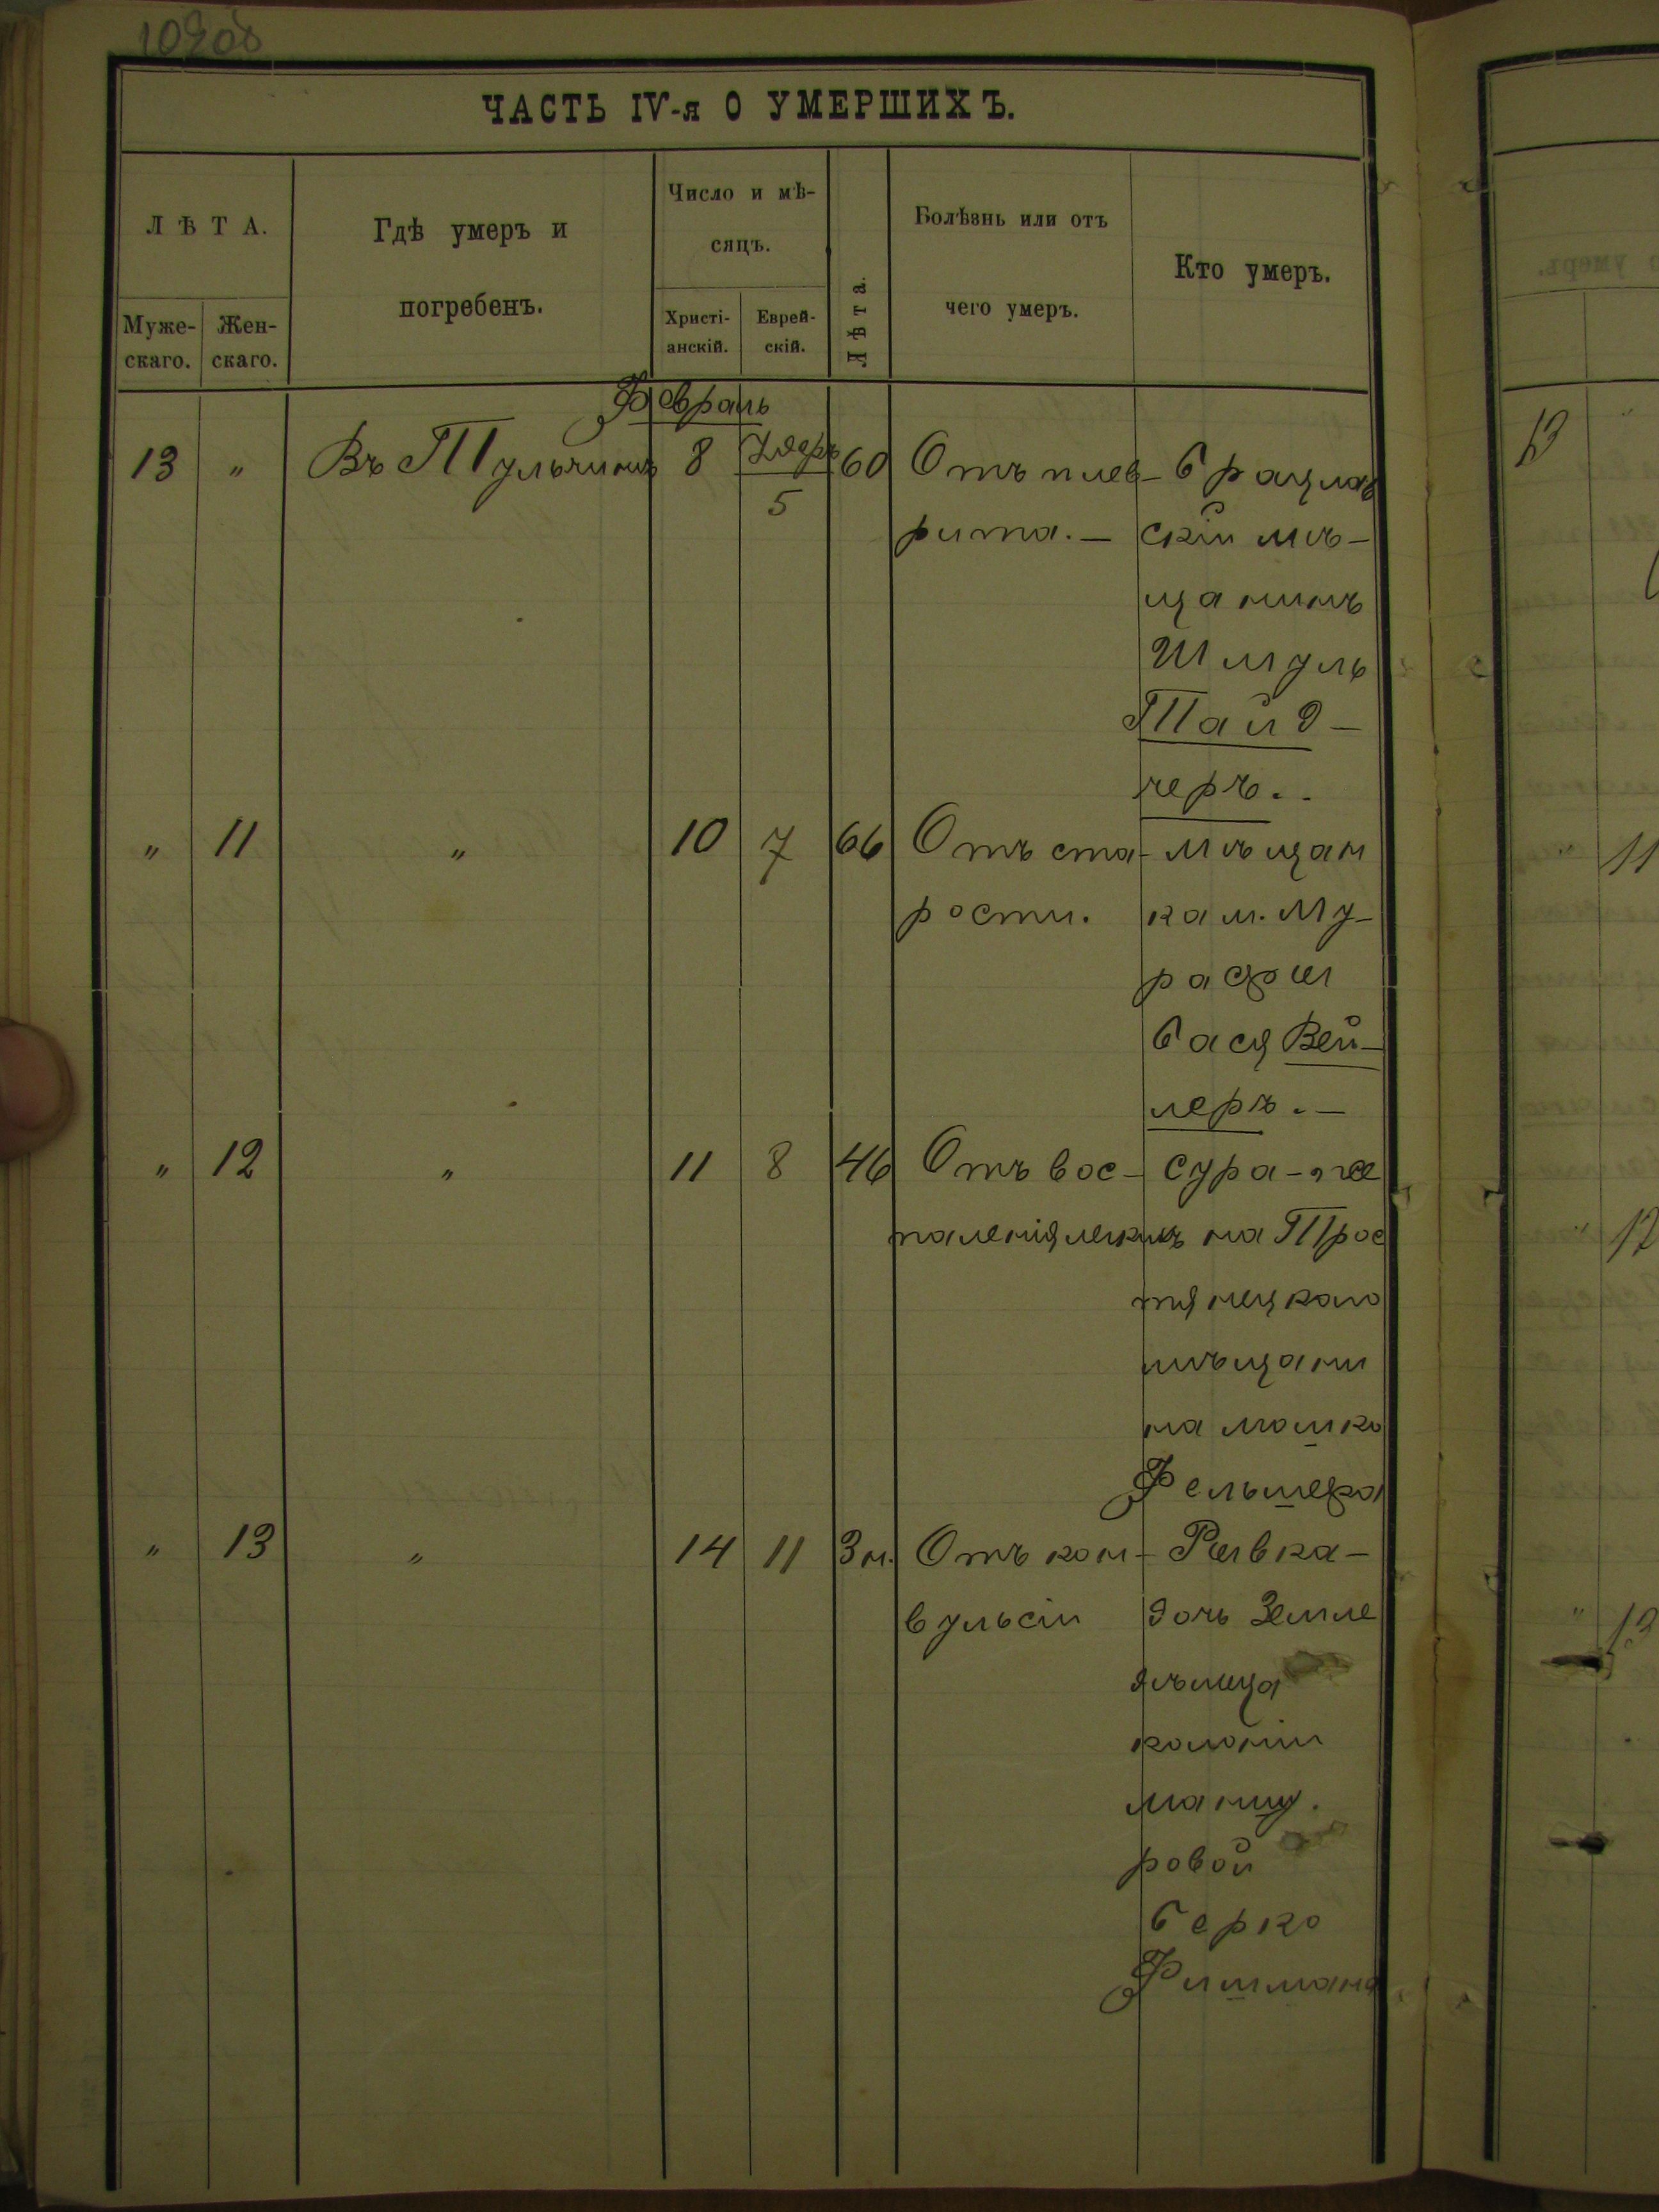 109об
ЧАСТЬ IV-я О УМЕРШИХЪ.
ЛѢТА.
Муже-
скаго.
Жен-
скаго.
Гдѣ умеръ и
погребенъ.
Число и мѣ-
сяцъ.
Христі-
анскій.
Еврей-
скій.
Лѣта.
Болѣзнь или отъ
чего умеръ.
Кто умеръ.
Февраль
13 " Въ Тульчинѣ 8 Адеръ 5 60 Отъ плев-
рита. —
Брацлав
скій мѣ-
щанинъ
Шмуль
Тайд-
черъ..
" 11 " 10 7 66 Отъ ста-
рости.
мѣщан
ка м. Му-
рафы
Бася Вей-
леръ. —
" 12 " 11 8 46 Отъ вос-
паленія легкихъ
Сура - же
на Прос
тянецкаго
мѣщани
на Мошко
Фельшера
" 13 " 14 11 3 м. Отъ кон-
вульсіи
Рывка -
дочь Земле
дѣльца
колоніи
ровой
Берко
Фишмана
13
11
12
13